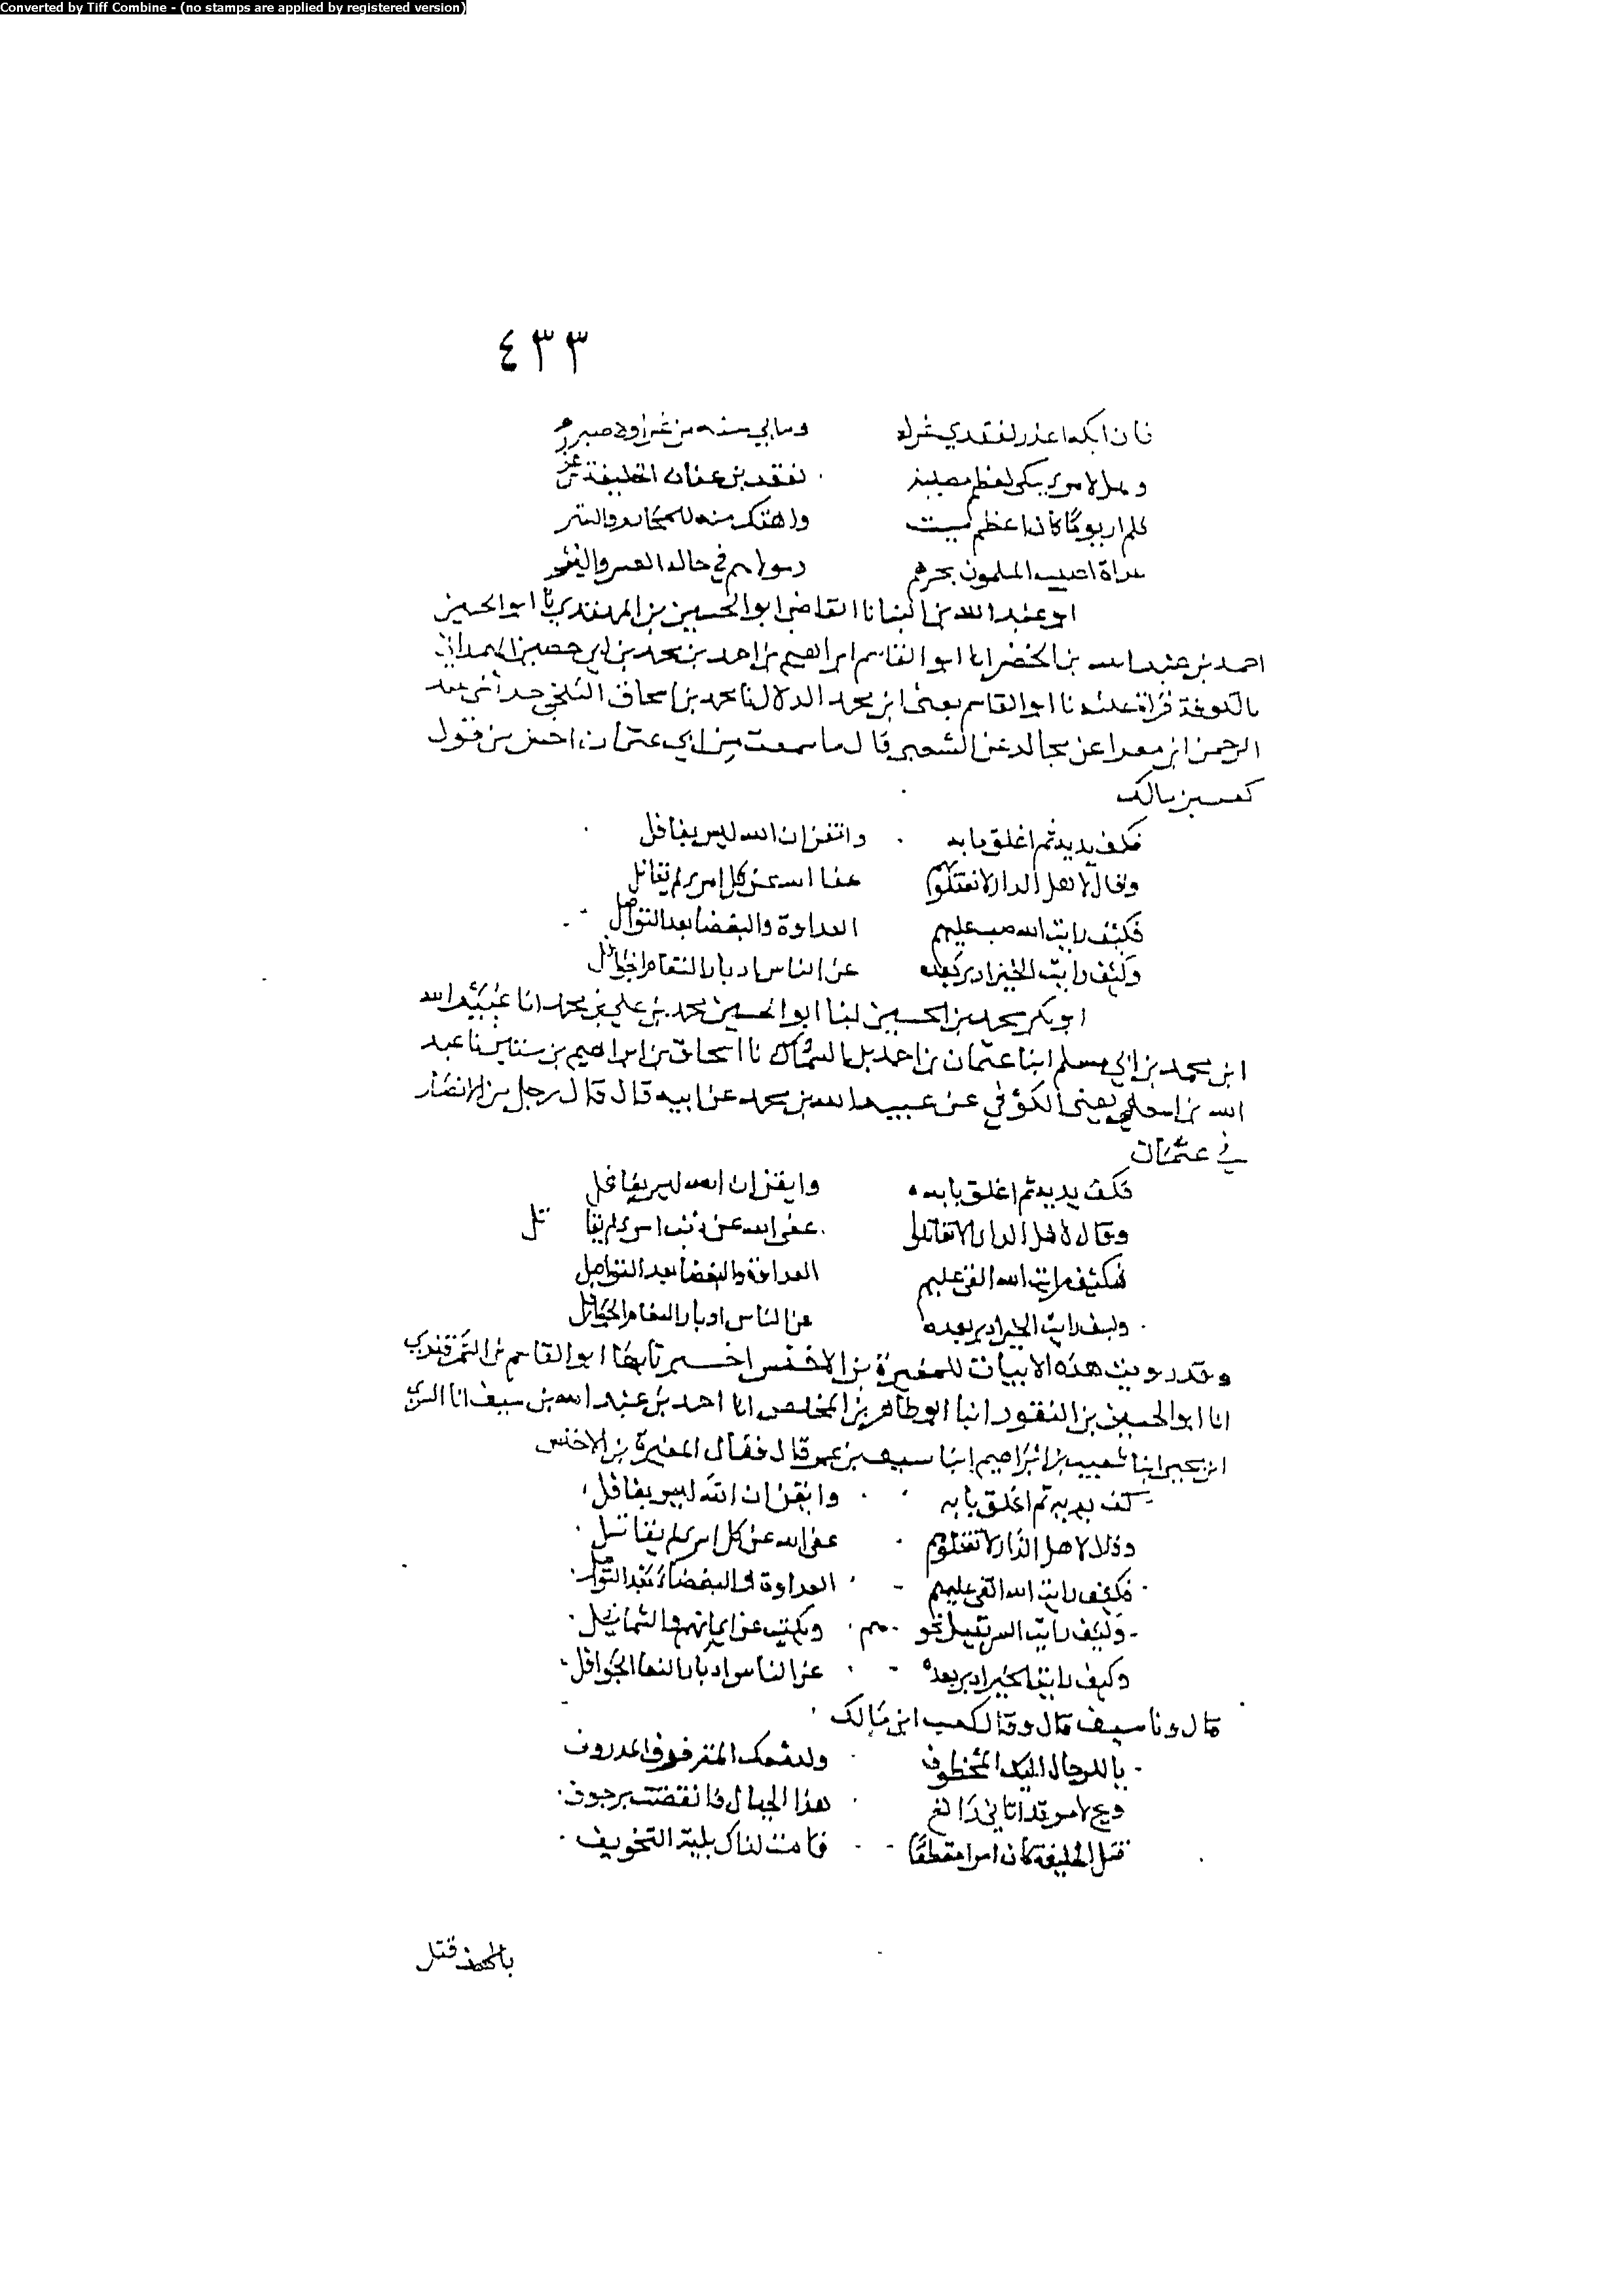 Converted by Tiff Combine - (no stamps are applied by registered version)
٤٣٣
فان ابكه اعذر لفقدي وما بي منه من صبر
وهل لامرئ يبكي لعظم مصيبة لفقد بن عفان الخليفة من
فلم ار يوما كان اعظم ميتت واهتك منه للمحارم والستر
غداة اصيب المسلمون بخيرهم ومولاهم في حالة العسر واليسر
ابو عبد الله بن البنا انا القاضي ابو الحسين بن المهتدي نا ابو الحسين
احمد بن عبد الله بن الخضر انا ابو القاسم ابراهيم بن احمد بن محمد بن ابي حصين الهمداني
بالكوفة قراة عليه نا ابو القاسم يعني ابن محمد الدلال نا محمد بن اسحاق البلخي حدثني عبد
الرحمن ابن مغرا عن مجالد عن الشعبي قال ما سمعت من مراثي عثمان احسن من قول
كعب بن مالك
فكف يديه ثم اغلق بابه وايقن ان الله ليس بغافل
وقال لاهل الدار لا تقتلوهم عفا الله عن كل امرئ لم يقاتل
فكيف رايت الله صب عليهم العداوة والبغضا بعد التواصل
وكيف رايت الخير ادبر بعده عن الناس ادبار النعام الجوافل
ابو بكر محمد بن الحسين نا ابو الحسين محمد بن علي بن محمد انا عبيد الله
ابن محمد بن ابي مسلم انبا عثمان بن احمد بن السماك نا اسحاق بن ابراهيم بن سنين نا عبد
الله بن يعني الكوفي عن عبيد الله بن محمد عن ابيه قال قال رجل من الانصار
في عثمان
فكف يديه ثم اغلق بابه وايقن ان الله ليس بغافل
وقال لاهل الدار لا تقاتلوا عفى الله عن ذنب امرئ لم يقا تل
فكيف رايت الله القى عليهم العداوة والبغضا بعد التواصل
وكيف رايت الخير ادبر بعده عن الناس ادبار النعام الجوافل
وقد رويت هذه الابيات للمغيرة بن الاخنس اخبرنا بها ابو القاسم بن السمرقندي
انا ابو الحسين بن النقور انبا ابو طاهر بن المخلص انا احمد بن عبد الله بن سيف انا السري
ابن يحيى انبا شعيب بن ابراهيم انبا سيف بن عمر قال فقال المغيرة بن الاخنس
كف يديه ثم اغلق بابه وايقن ان الله ليس بغافل
وقال لاهل الدار لا تقتلوهم عفى الله عن كل امرئ لم يقاتل
فكيف رايت الله القى عليهم العداوة والبغضاء بعد التواصل
وكيف رايت نحوهم عن ايمانهم والشمايل
وكيف رايت الخير ادبر بعده عن الناس ادبار النعام الجوافل
قال ونا سيف قال وقال كعب ابن مالك
يا للرجال ولدمعك المترقرق المذروف
ويح لامر قد اتاني رائع هذا الجبال فانقضت برجوف
قتل الخليفة كان امرا مفظعا قامت لذاك بلية التخويف
قتل